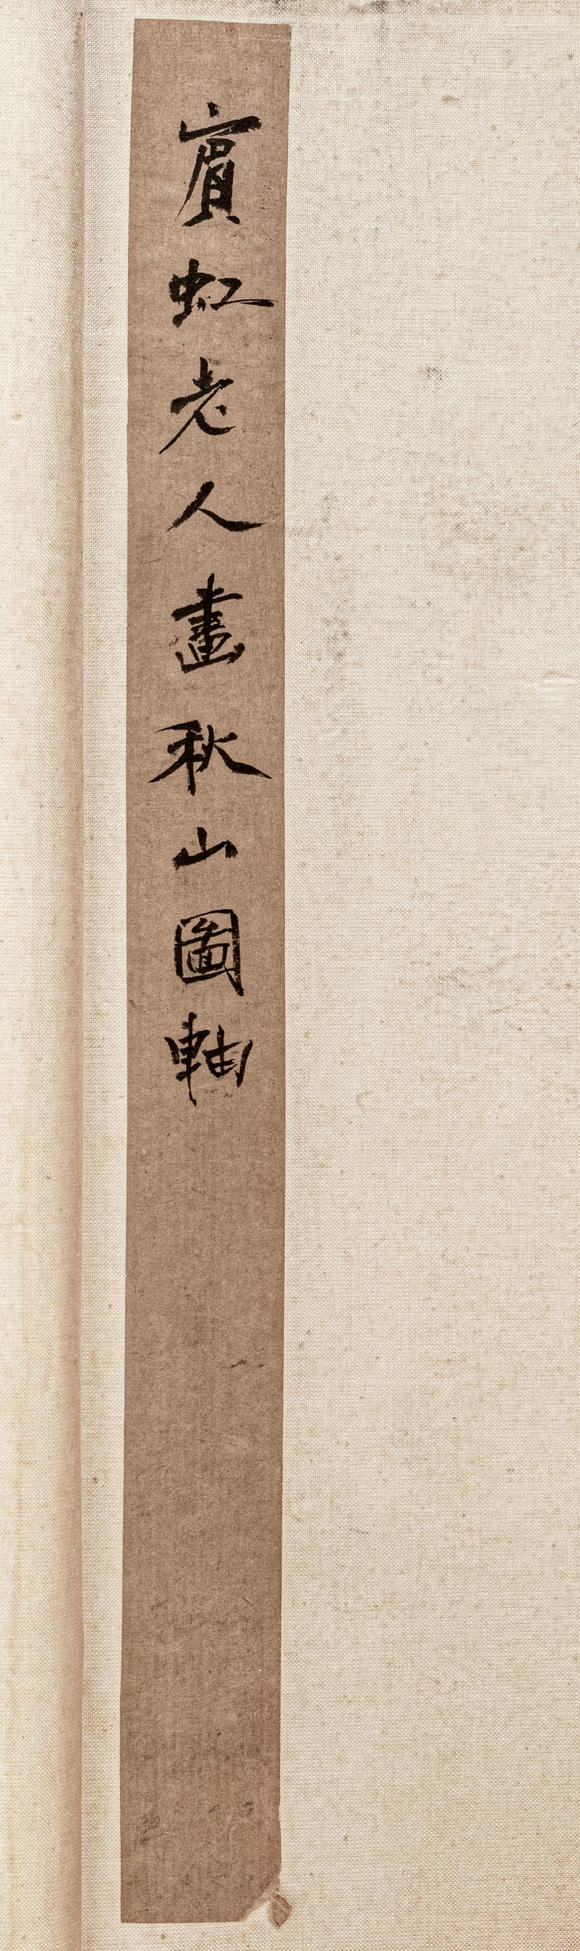 賓虹老人畫秋山圖軸